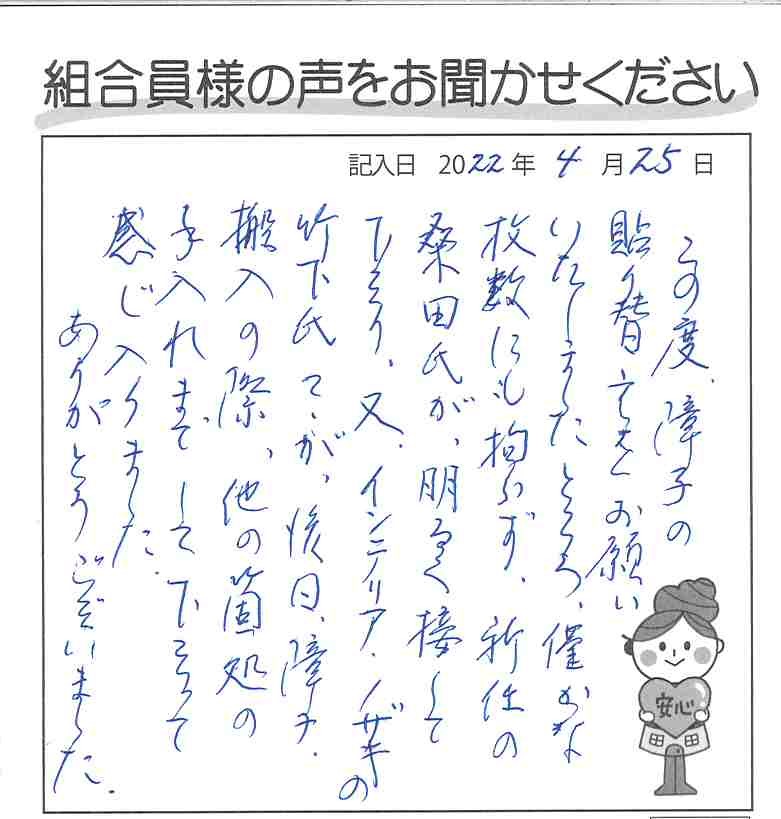 組合員様の声をお聞かせください
記入日 2022年 4月25日
この度、障子の
貼り替えをお願い
いたしましたところ、僅かな
枚数にも拘らず、新任の
桑田氏が、明るく接して
下さり、又、インテリア・ノザキの
竹下氏が、後日、障子
搬入の際、他の箇処の
手入れまでして下さって
感じ入りました。
ありがとうございました。
安心